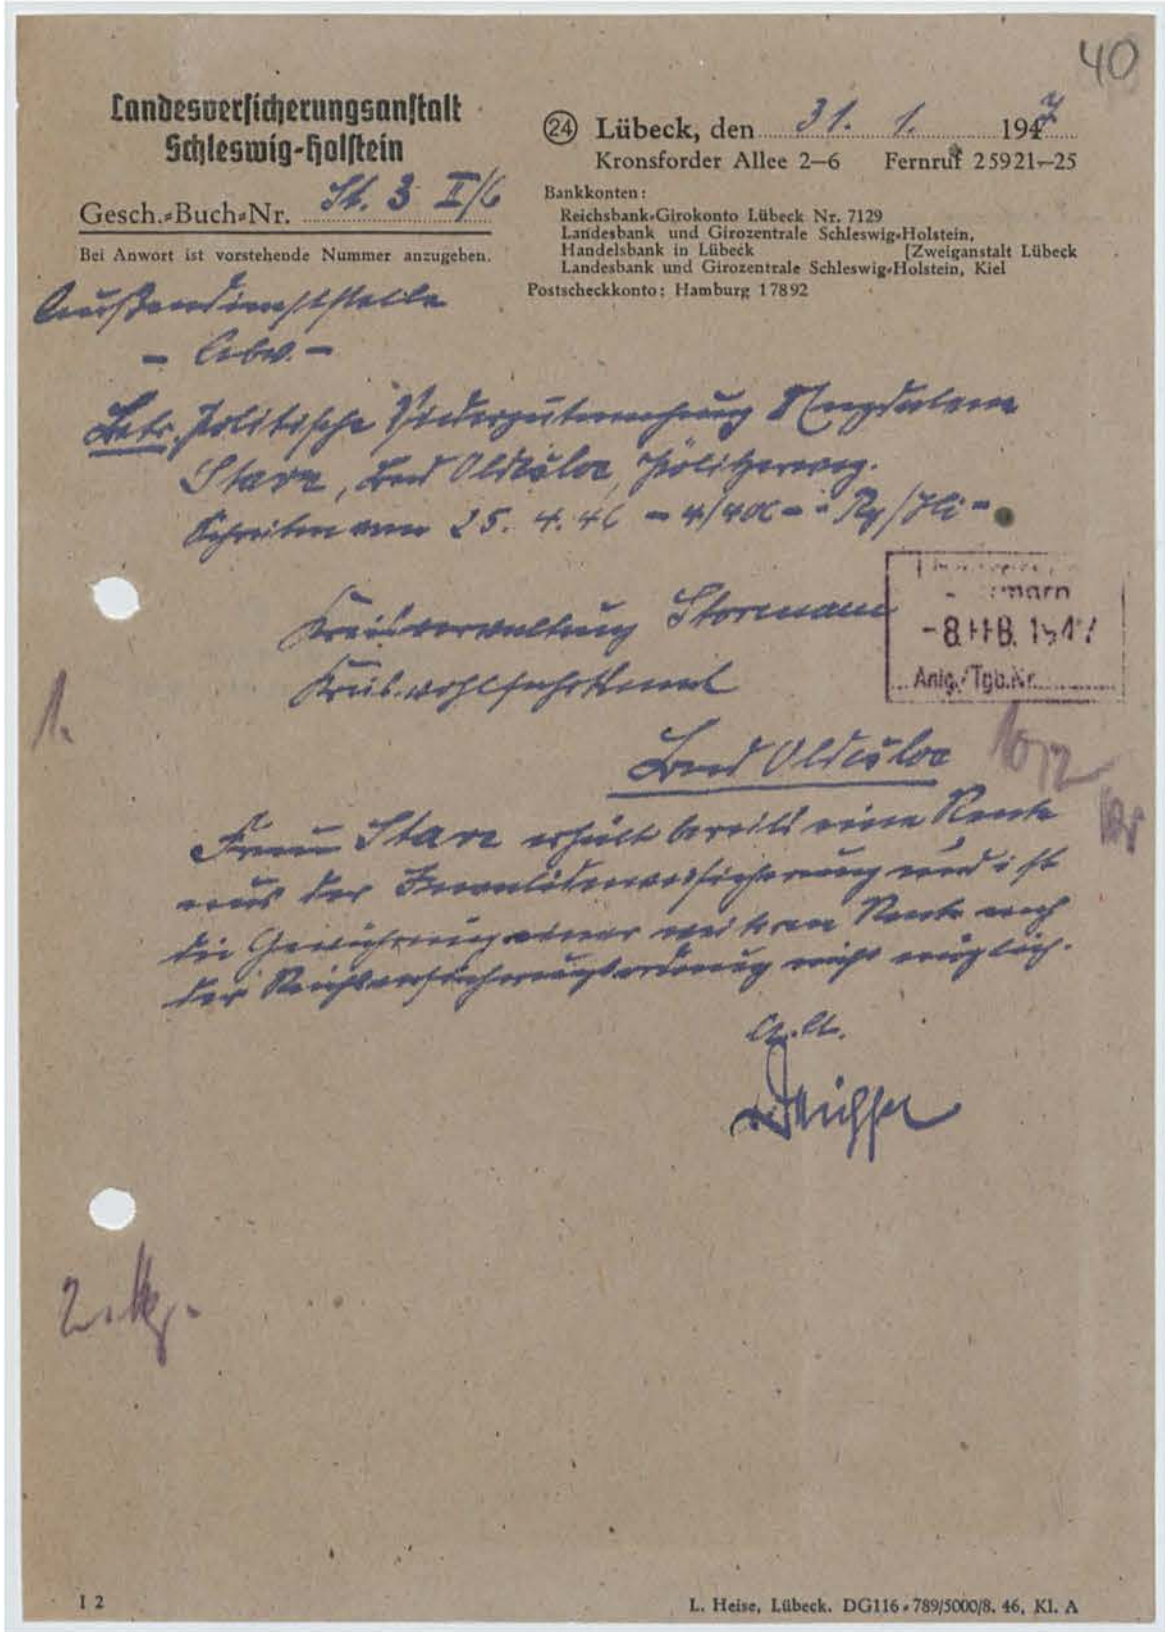 40
Landesversicherungsanstalt
Schleswig-Holstein
Gesch.-Buch-Nr. St. 3 II/6
Bei Anwort ist vorstehende Nummer anzugeben.
24 Lübeck, den 31. 1. 1947
Kronsforder Allee 2–6 Fernruf 25921–25
Bankkonten:
Reichsbank-Girokonto Lübeck Nr. 7129
Landesbank und Girozentrale Schleswig-Holstein,
Handelsbank in Lübeck [Zweiganstalt Lübeck
Landesbank und Girozentrale Schleswig-Holstein, Kiel
Postscheckkonto: Hamburg 17892
Außendienststelle
Betr. Politische Wiedergutmachung Magdalena
Stare, Bad Oldesloe, Pölitzerweg.
Schreiben vom 25. 4. 46
Kreisverwaltung Stormarn
Kreiswohlfahrtsamt
Bad Oldesloe
-8. FEB. 1947
Anlg./Tgb.Nr.
1.
10/2
Frau Stare erhält bereits eine Rente
aus der Invalidenversicherung und ist
die Gewährung einer weiteren Rente nach
der Reichsversicherungsordnung nicht möglich.
2.
I 2
L. Heise, Lübeck. DG116-789/5000/8. 46. Kl. A